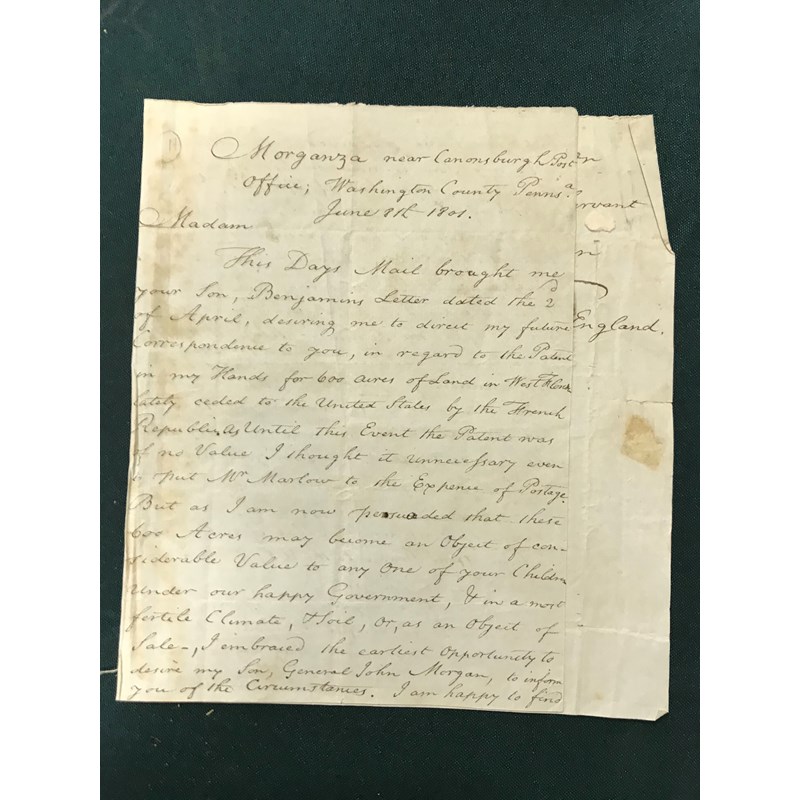 Morganza near Canonsburgh Post
Office; Washington County Pennsa.
June 21st 1801.
Madam
This Days Mail brought me
your Son, Benjamins Letter dated the 2d
of April, desiring me to direct my future
Correspondence to you, in regard to the Patent
in my Hands for 600 acres of Land in West
lately ceded to the United States by the French
Republic. As Until this Event the Patent was
of no Value I thought it unnecessary even
to put Mr Marlow to the Expence of Postage.
But as I am now persuaded that these
600 Acres may become an Object of con-
siderable Value to any One of your Children
Under our happy Government, & in a most
fertile Climate, & Soil, Or, as an Object of
Sale-, I embraced the earliest Opportunity to
desire my Son, General John Morgan, to inform
you of the Circumstances. I am happy to find
England.